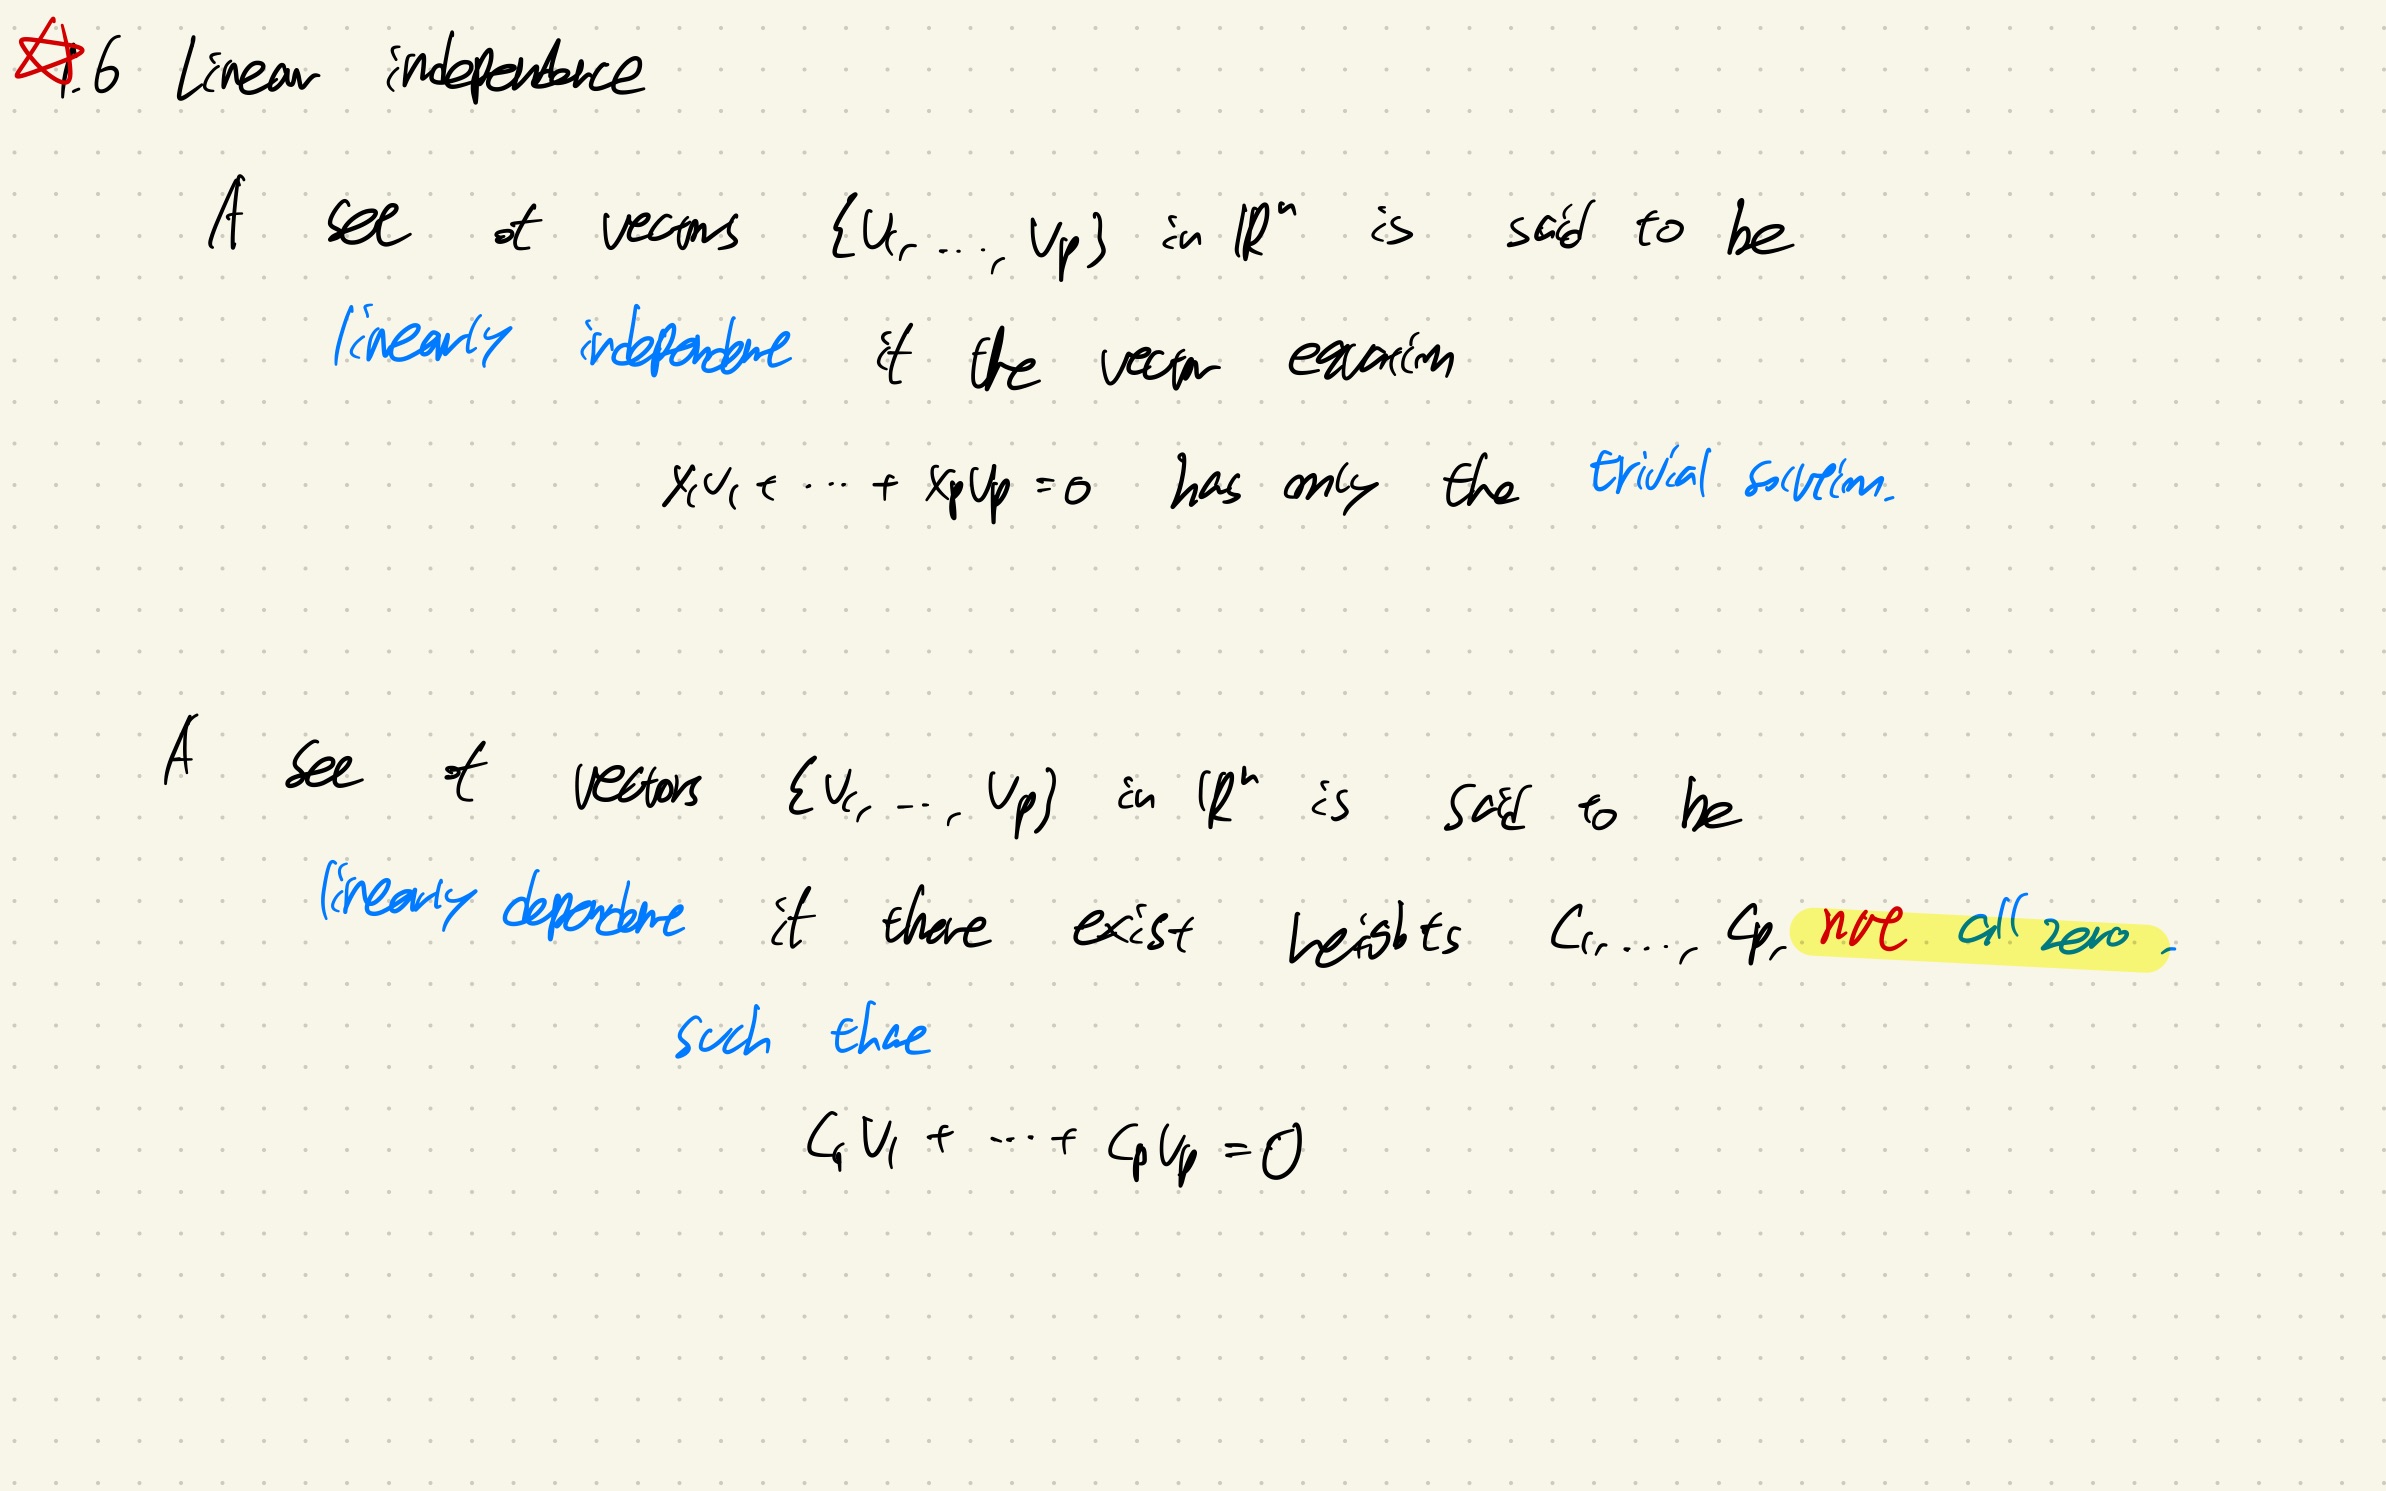 1.6 Linear independence
A set of vectors {v₁, ..., vp} in ℝⁿ is said to be
linearly independent if the vector equation
x₁v₁ + ... + xpvp = 0 has only the trivial solution.
A set of vectors {v₁, ..., vp} in ℝⁿ is said to be
linearly dependent if there exist weights c₁, ..., cp, not all zero,
such that
c₁v₁ + ... + cpvp = 0